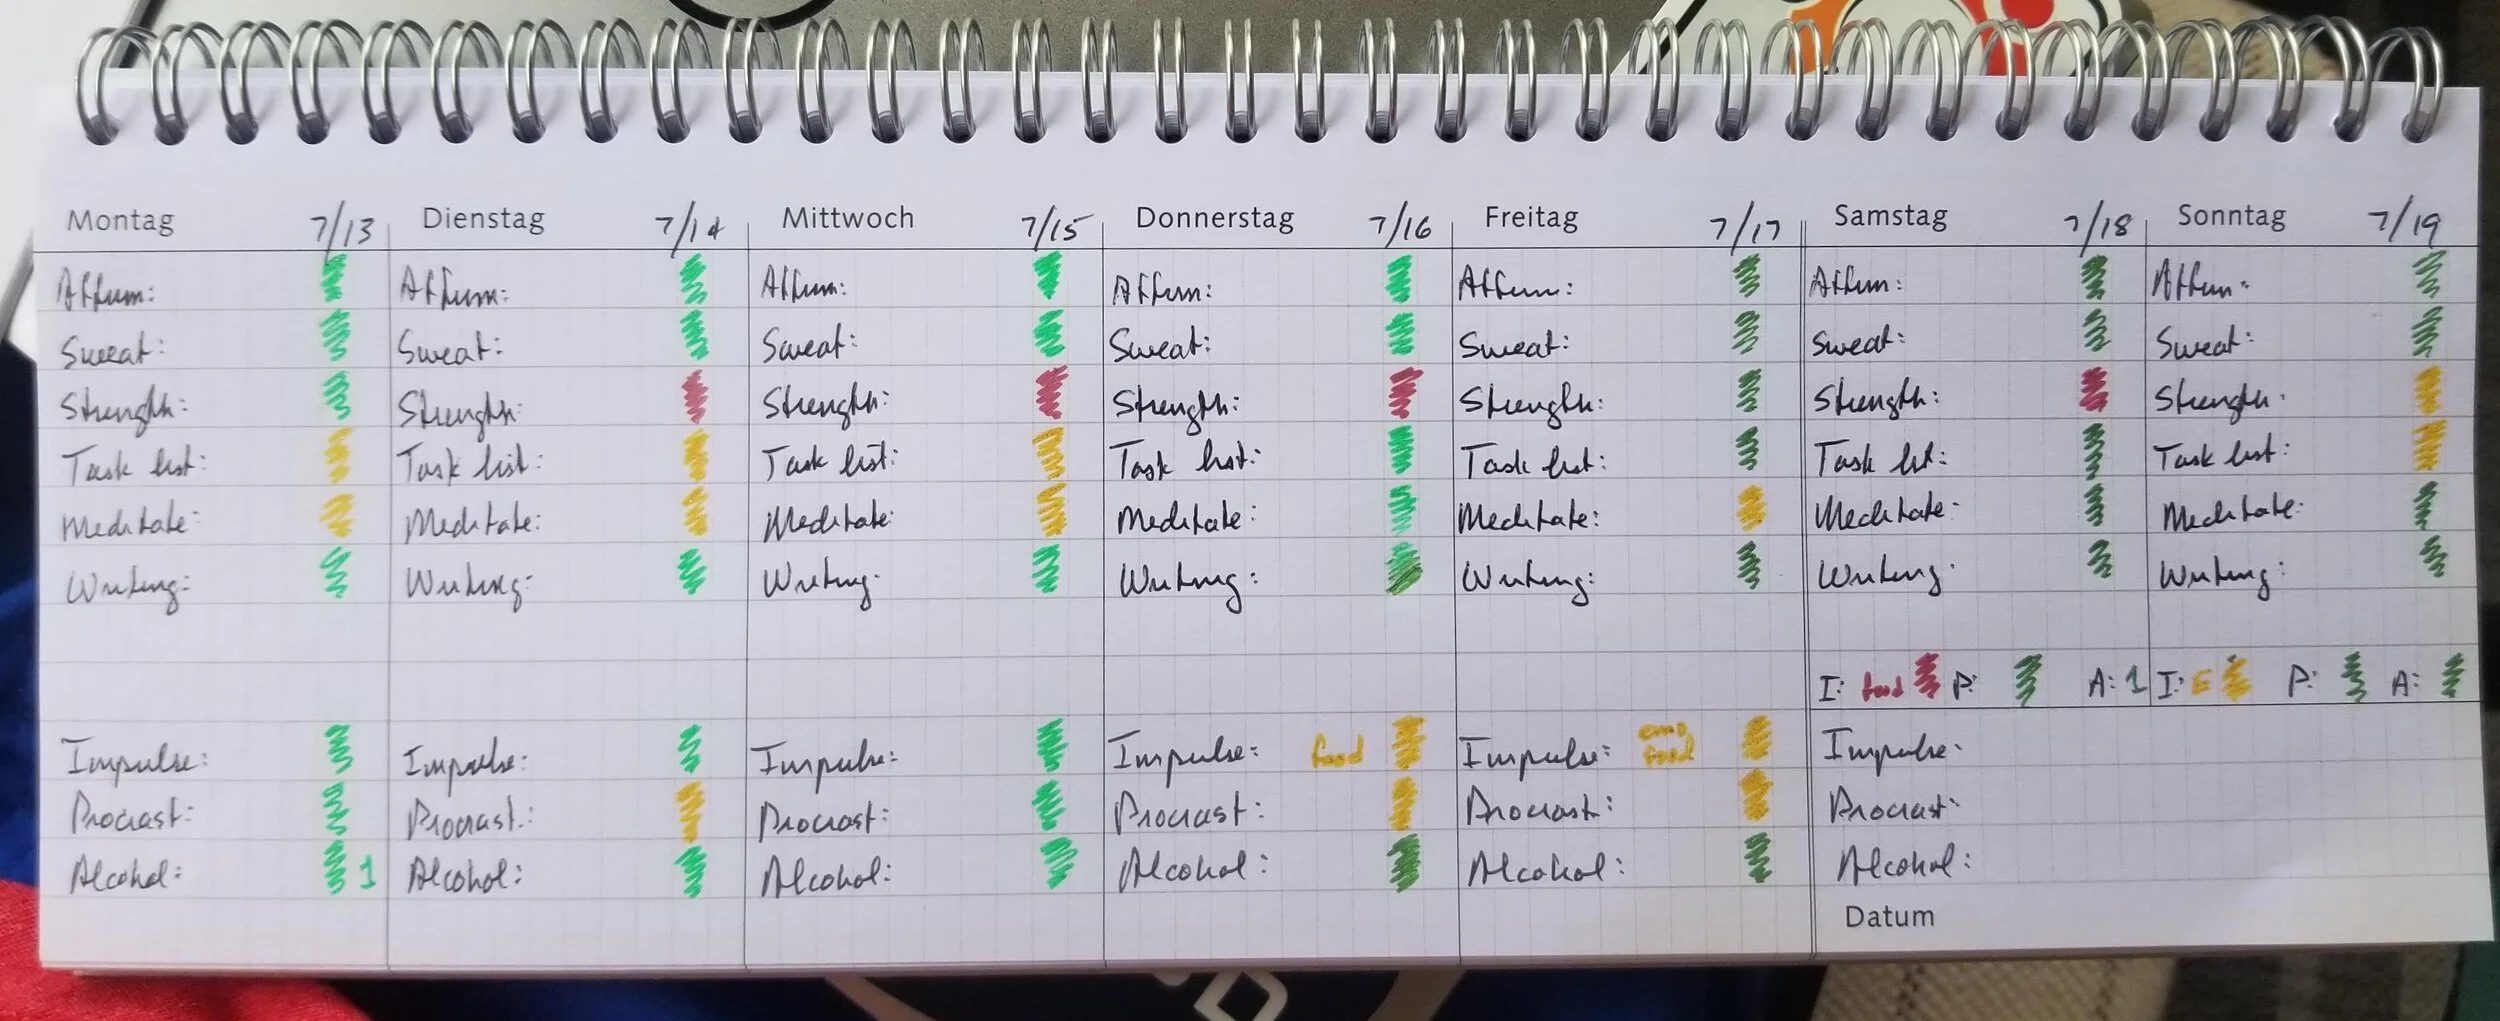 Montag 7/13
Affirm:
Sweat:
Strength:
Task list:
Meditate:
Writing:
Impulse:
Procrast:
Alcohol: 1
Dienstag 7/14
Affirm:
Sweat:
Strength:
Task list:
Meditate:
Writing:
Impulse:
Procrast.:
Alcohol:
Mittwoch 7/15
Affirm:
Sweat:
Strength:
Task list:
Meditate:
Writing:
Impulse:
Procrast:
Alcohol:
Donnerstag 7/16
Affirm:
Sweat:
Strength:
Task list:
Meditate:
Writing:
Impulse: food
Procrast:
Alcohol:
Freitag 7/17
Affirm:
Sweat:
Strength:
Task list:
Meditate:
Writing:
Impulse: emo food
Procrast:
Alcohol:
Samstag 7/18
Affirm:
Sweat:
Strength:
Task lst:
Meditate:
Writing:
I: food P: A: 1
Impulse:
Procrast:
Alcohol:
Datum
Sonntag 7/19
Affirm:
Sweat:
Strength:
Task list:
Meditate:
Writing:
I: E P: A: